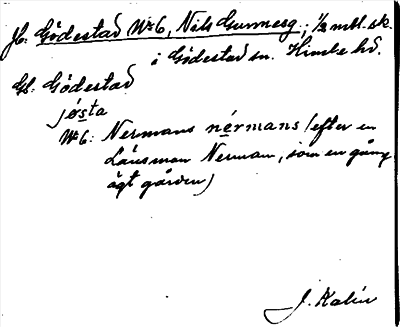 Jb. Gödestad No 6, Nils Gunnesg.; 1/2 mtl. sk.
i Gödestad sn. Himle hd.
Gl. Gödestad
jøsta
No 6: Nermans nérmans (efter en
Länsman Nerman, som en gång
ägt gården)
J. Kalén